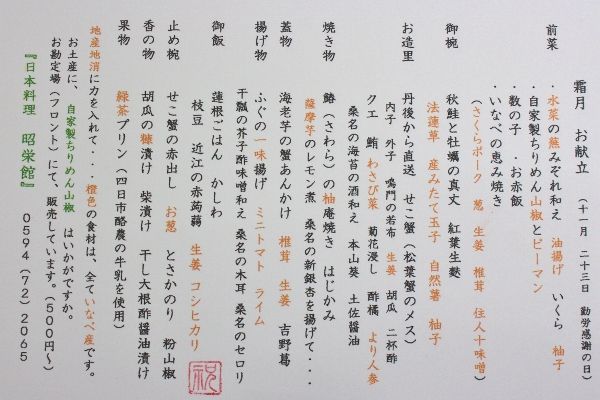 霜月 お献立 (十一月 二十三日 勤労感謝の日)
前菜 ・水菜の蕪みぞれ和え 油揚げ いくら 柚子
・自家製ちりめん山椒とピーマン
・数の子 ・お赤飯
・いなべの恵み焼き
(さくらポーク 葱 生姜 椎茸 住人十味噌)
御椀 秋鮭と牡蠣の真丈 紅葉生麩
法蓮草 産みたて玉子 自然薯 柚子
お造里 丹後から直送 せこ蟹(松葉蟹のメス)
内子 外子 鳴門の若布 生姜 胡瓜 二杯酢
クエ 鮪 わさび菜 菊花浸し 酢橘 より人参
桑名の海苔の酒和え 本山葵 土佐醤油
焼き物 鰆(さわら)の柚庵焼き はじかみ
薩摩芋のレモン煮 桑名の新銀杏を揚げて・・・
蓋物 海老芋の蟹あんかけ 椎茸 生姜 吉野葛
揚げ物 ふぐの一味揚げ ミニトマト ライム
干瓢の芥子酢味噌和え 桑名の木耳 桑名のセロリ
御飯 蓮根ごはん かしわ
枝豆 近江の赤蒟蒻 生姜 コシヒカリ
止め椀 せこ蟹の赤出し お葱 とさかのり 粉山椒
香の物 胡瓜の糠漬け 柴漬け 干し大根酢醤油漬け
果物 緑茶プリン(四日市酪農の牛乳を使用)
地産地消に力を入れて・・橙色の食材は、全ていなべ産です。
お土産に、自家製ちりめん山椒 はいかがですか。
お勘定場(フロント)にて、販売しています。(500円~)
『日本料理 昭栄館』 0594(72)2065
祝